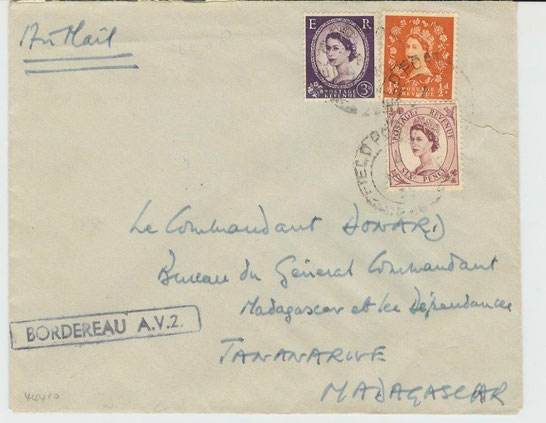 Air Mail
E R
POSTAGE REVENUE
3D
POSTAGE REVENUE
½d
POSTAGE REVENUE
SIX PENCE
FIELD PO
Le Commandant DONARD
Bureau du Général Commandant
Madagascar et les Dépendances
BORDEREAU A.V.2.
TANANARIVE
MADAGASCAR